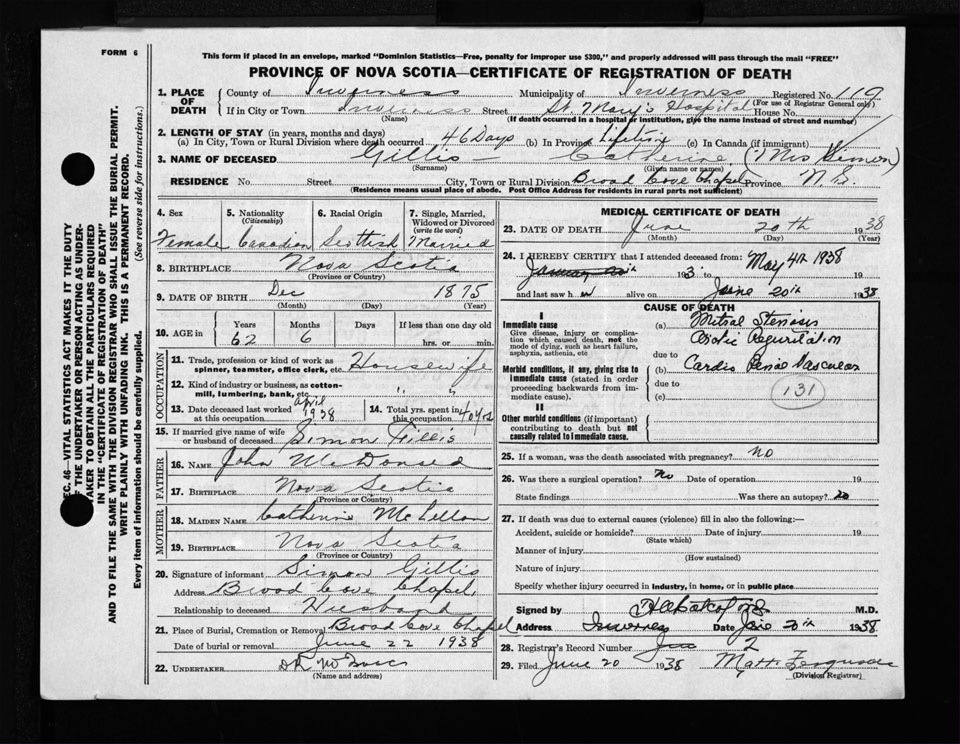 FORM 6
This form if placed in an envelope, marked "Dominion Statistics—Free, penalty for improper use $300," and properly addressed will pass through the mail "FREE"
PROVINCE OF NOVA SCOTIA—CERTIFICATE OF REGISTRATION OF DEATH
1. PLACE OF DEATH County of Inverness Municipality of Inverness Registered No. 119
(For use of Registrar General only)
If in City or Town Inverness Street St. Mary's Hospital House No.
(Name) (If death occurred in a hospital or institution, give the name instead of street and number)
2. LENGTH OF STAY (in years, months and days)
(a) In City, Town or Rural Division where death occurred 46 Days (b) In Province Lifetime (c) In Canada (if immigrant)
3. NAME OF DECEASED Gillis — Catherine (Mrs Simon)
(Surname) (Given name or names)
RESIDENCE No. Street City, Town or Rural Division Broad Cove Chapel Province N.S.
(Residence means usual place of abode. Post Office Address for residents in rural parts not sufficient)
4. Sex 5. Nationality (Citizenship) 6. Racial Origin 7. Single, Married, Widowed or Divorced (write the word)
Female Canadian Scottish Married
8. BIRTHPLACE Nova Scotia
(Province or Country)
9. DATE OF BIRTH Dec 1875
(Month) (Day) (Year)
10. AGE in Years Months Days If less than one day old
62 6 hrs. or min.
OCCUPATION
11. Trade, profession or kind of work as spinner, teamster, office clerk, etc. Housewife
12. Kind of industry or business, as cotton-mill, lumbering, bank, etc. " "
13. Date deceased last worked at this occupation April 1938 14. Total yrs. spent in this occupation 40 yrs
15. If married give name of wife or husband of deceased Simon Gillis
FATHER
16. NAME John McDonald
17. BIRTHPLACE Nova Scotia
(Province or Country)
MOTHER
18. MAIDEN NAME Catherine McLellan
19. BIRTHPLACE Nova Scotia
(Province or Country)
20. Signature of informant Simon Gillis
Address Broad Cove Chapel
Relationship to deceased Husband
21. Place of Burial, Cremation or Removal Broad Cove Chapel
Date of burial or removal June 22 1938
22. UNDERTAKER
(Name and address)
MEDICAL CERTIFICATE OF DEATH
23. DATE OF DEATH June 20th 1938
(Month) (Day) (Year)
24. I HEREBY CERTIFY that I attended deceased from: May 4th 1938
193
and last saw h alive on June 20th 1938
CAUSE OF DEATH
I
Immediate cause
Give disease, injury or complication which caused death, not the mode of dying, such as heart failure, asphyxia, asthenia, etc
(a) Mitral Stenosis
Aortic Regurgitation
due to
Morbid conditions, if any, giving rise to immediate cause (stated in order proceeding backwards from immediate cause).
(b) Cardio Renal Vascular
due to
(c)
131
II
Other morbid conditions (if important) contributing to death but not causally related to immediate cause.
25. If a woman, was the death associated with pregnancy? no
26. Was there a surgical operation? no Date of operation 19
State findings Was there an autopsy? no
27. If death was due to external causes (violence) fill in also the following:—
Accident, suicide or homicide? Date of injury 19
(State which)
Manner of injury
(How sustained)
Nature of injury
Specify whether injury occurred in industry, in home, or in public place
Signed by M.D.
Address Inverness Date June 20th 1938.
28. Registrar's Record Number 2
29. Filed June 20 1938 Matt Ferguson
(Division Registrar)
SEC. 46—VITAL STATISTICS ACT MAKES IT THE DUTY OF THE UNDERTAKER OR PERSON ACTING AS UNDERTAKER TO OBTAIN ALL THE PARTICULARS REQUIRED IN THE "CERTIFICATE OF REGISTRATION OF DEATH" AND TO FILE THE SAME WITH THE DIVISION REGISTRAR WHO SHALL ISSUE THE BURIAL PERMIT.
WRITE PLAINLY WITH UNFADING INK. THIS IS A PERMANENT RECORD.
Every item of information should be carefully supplied. (See reverse side for instructions.)